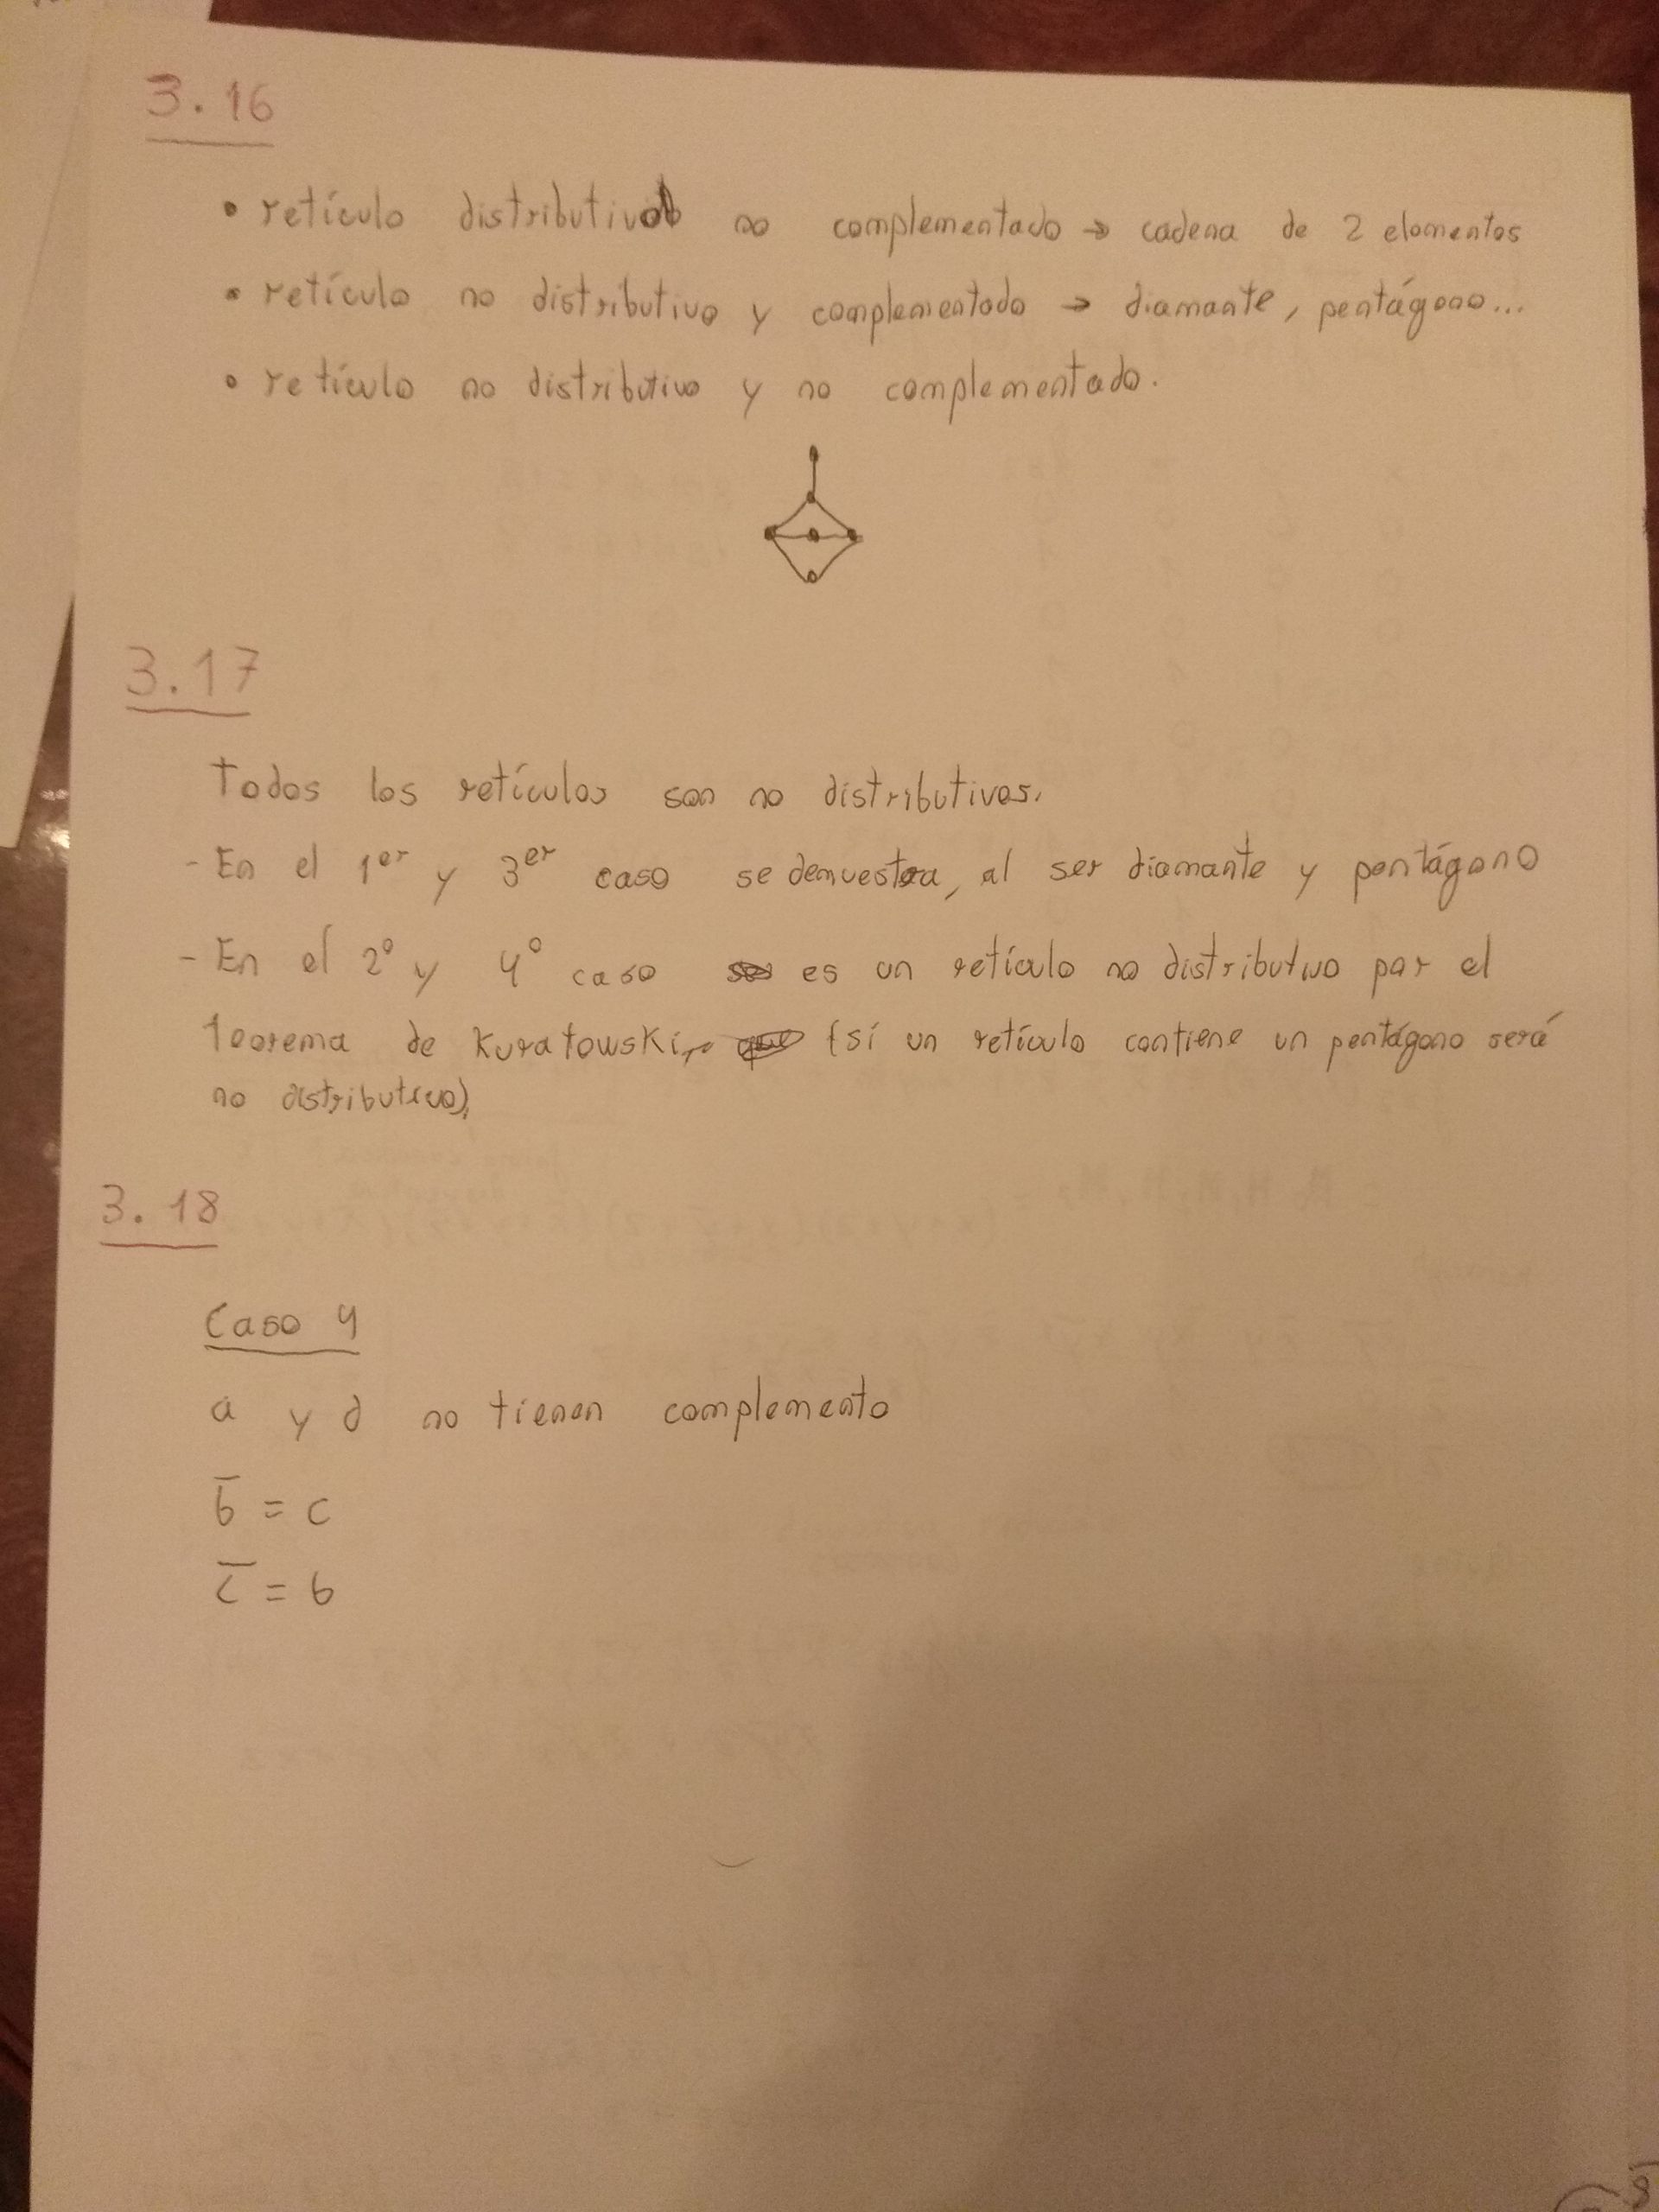 3.16
• retículo distributivo no complementado → cadena de 2 elementos
• retículo no distributivo y complementado → diamante, pentágono...
• retículo no distributivo y no complementado.
3.17
Todos los retículos son no distributivos.
- En el 1er y 3er caso se demuestra, al ser diamante y pentágono
- En el 2º y 4º caso es un retículo no distributivo por el
Teorema de Kuratowski, (si un retículo contiene un pentágono será
no distributivo).
3.18
Caso 4
a y d no tienen complemento
b̅ = c
c̅ = b